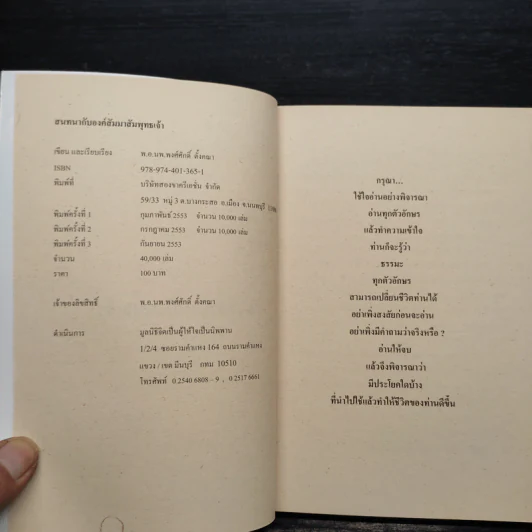 สนทนากับองค์สัมมาสัมพุทธเจ้า
เขียน และเรียบเรียง พ.อ.นพ.พงศ์ศักดิ์ ตั้งคณา
ISBN 978-974-401-365-1
พิมพ์ที่ บริษัทสองขาครีเอชั่น จำกัด
59/33 หมู่ 3 ต.บางกระสอ อ.เมือง จ.นนทบุรี
พิมพ์ครั้งที่ 1 กุมภาพันธ์ 2553 จำนวน 10,000 เล่ม
พิมพ์ครั้งที่ 2 กรกฎาคม 2553 จำนวน 10,000 เล่ม
พิมพ์ครั้งที่ 3 กันยายน 2553
จำนวน 40,000 เล่ม
ราคา 100 บาท
เจ้าของลิขสิทธิ์ พ.อ.นพ.พงศ์ศักดิ์ ตั้งคณา
ดำเนินการ มูลนิธิจิตเป็นผู้ให้ใจเป็นนิพพาน
1/2/4 ซอยรามคำแหง 164 ถนนรามคำแหง
แขวง / เขต มีนบุรี กทม 10510
โทรศัพท์ 0 2540 6808 – 9 , 0 2517 6661
กรุณา...
ใช้ใจอ่านอย่างพิจารณา
อ่านทุกตัวอักษร
แล้วทำความเข้าใจ
ท่านก็จะรู้ว่า
ธรรมะ
ทุกตัวอักษร
สามารถเปลี่ยนชีวิตท่านได้
อย่าเพิ่งสงสัยก่อนจะอ่าน
อย่าเพิ่งมีคำถามว่าจริงหรือ ?
อ่านให้จบ
แล้วจึงพิจารณาว่า
มีประโยคใดบ้าง
ที่นำไปใช้แล้วทำให้ชีวิตของท่านดีขึ้น